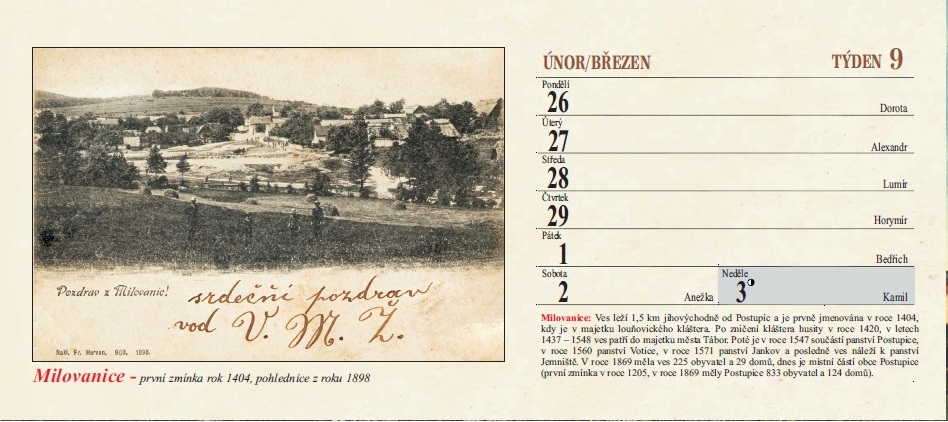 Pozdrav z Milovanic!
srdečňí pozdrav
vod V. M. Z.
Nakl. Fr. Harvan. 1898.
Milovanice - první zmínka rok 1404, pohlednice z roku 1898
ÚNOR/BŘEZEN TÝDEN 9
Pondělí
26 Dorota
Úterý
27 Alexandr
Středa
28 Lumír
Čtvrtek
29 Horymír
Pátek
1 Bedřich
Sobota
2 Anežka
Neděle
3 Kamil
Milovanice: Ves leží 1,5 km jihovýchodně od Postupic a je prvně jmenována v roce 1404,
kdy je v majetku louňovického kláštera. Po zničení kláštera husity v roce 1420, v letech
1437 – 1548 ves patří do majetku města Tábor. Poté je v roce 1547 součástí panství Postupice,
v roce 1560 panství Votice, v roce 1571 panství Jankov a posledně ves náleží k panství
Jemniště. V roce 1869 měla ves 225 obyvatel a 29 domů, dnes je místní částí obce Postupice
(první zmínka v roce 1205, v roce 1869 měly Postupice 833 obyvatel a 124 domů).